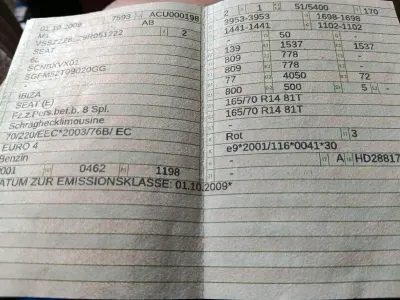 01.10.2009 7593 ACU000198
M1 AB
2
SEAT
6L
SCNBXVX01
SGFM52T99020GG
-
IBIZA
SEAT (E)
Fz.z.Pers.bef.b. 8 Spl.
Schräghecklimousine
70/220/EEC*2003/76B/ EC
EURO 4
Benzin
0001 0462 1198
DATUM ZUR EMISSIONSKLASSE: 01.10.2009*
2 1 51/5400 170
3953-3953 1698-1698
1441-1441 1102-1102
- 50 -
139 1537 1537
809 778 -
809 778 -
77 4050 72
800 500 5 -
165/70 R14 81T
165/70 R14 81T
-
Rot 3
e9*2001/116*0041*30
- A HD28817
-